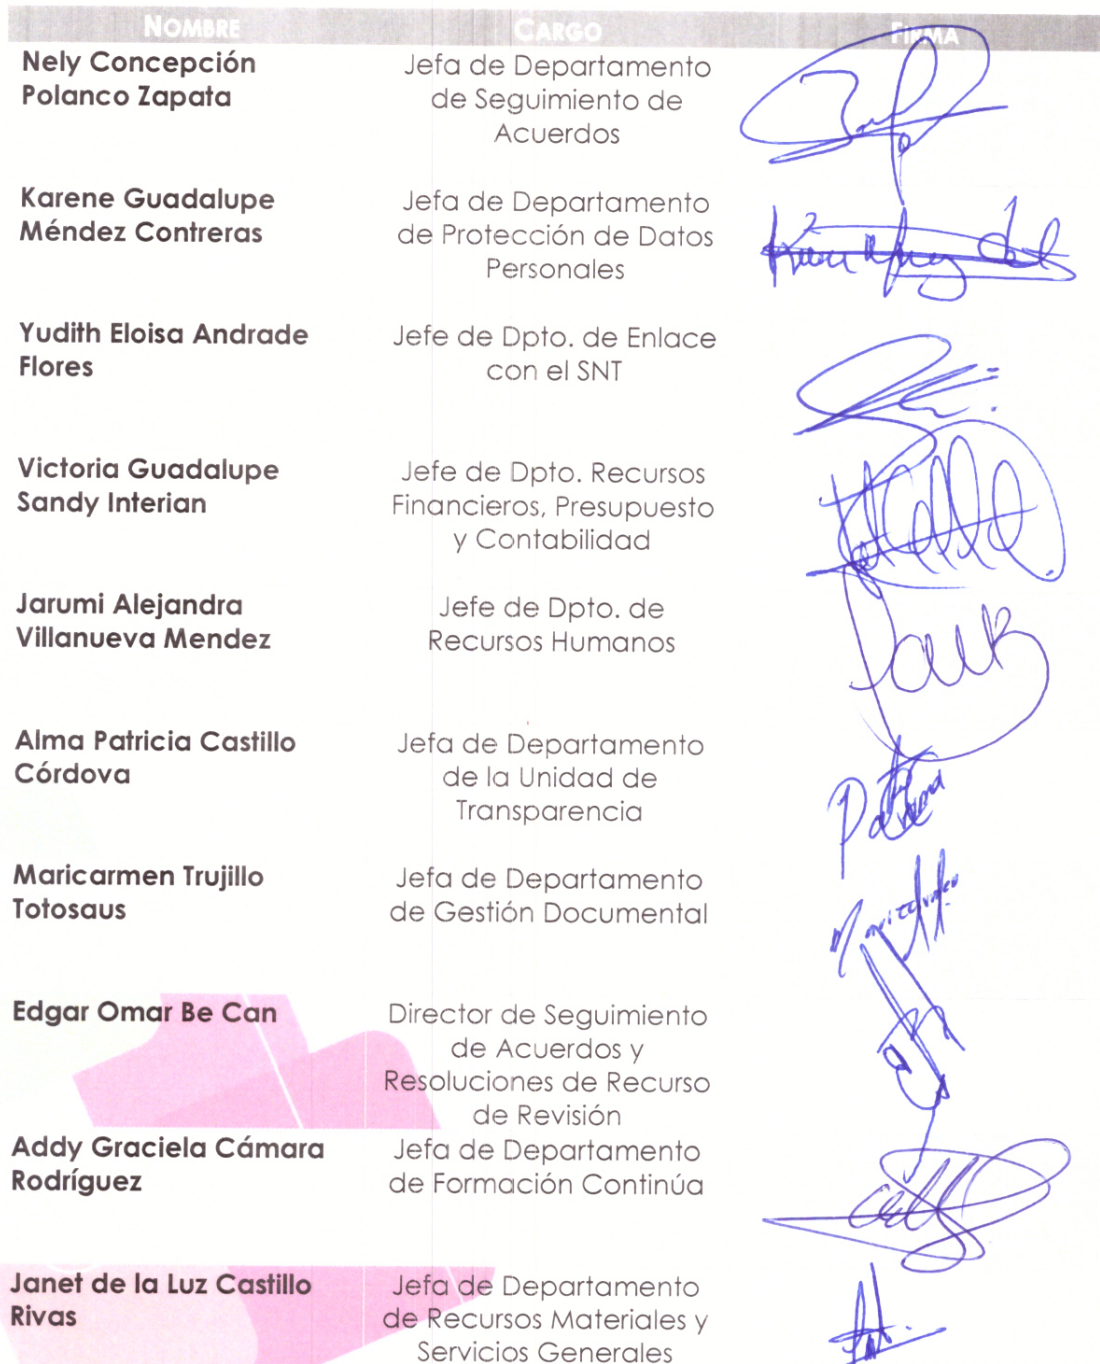 NOMBRE CARGO FIRMA
Nely Concepción
Polanco Zapata
Jefa de Departamento
de Seguimiento de
Acuerdos
Karene Guadalupe
Méndez Contreras
Jefa de Departamento
de Protección de Datos
Personales
Yudith Eloisa Andrade
Flores
Jefe de Dpto. de Enlace
con el SNT
Victoria Guadalupe
Sandy Interian
Jefe de Dpto. Recursos
Financieros, Presupuesto
y Contabilidad
Jarumi Alejandra
Villanueva Mendez
Jefe de Dpto. de
Recursos Humanos
Alma Patricia Castillo
Córdova
Jefa de Departamento
de la Unidad de
Transparencia
Maricarmen Trujillo
Totosaus
Jefa de Departamento
de Gestión Documental
Edgar Omar Be Can
Director de Seguimiento
de Acuerdos y
Resoluciones de Recurso
de Revisión
Addy Graciela Cámara
Rodríguez
Jefa de Departamento
de Formación Continúa
Janet de la Luz Castillo
Rivas
Jefa de Departamento
de Recursos Materiales y
Servicios Generales